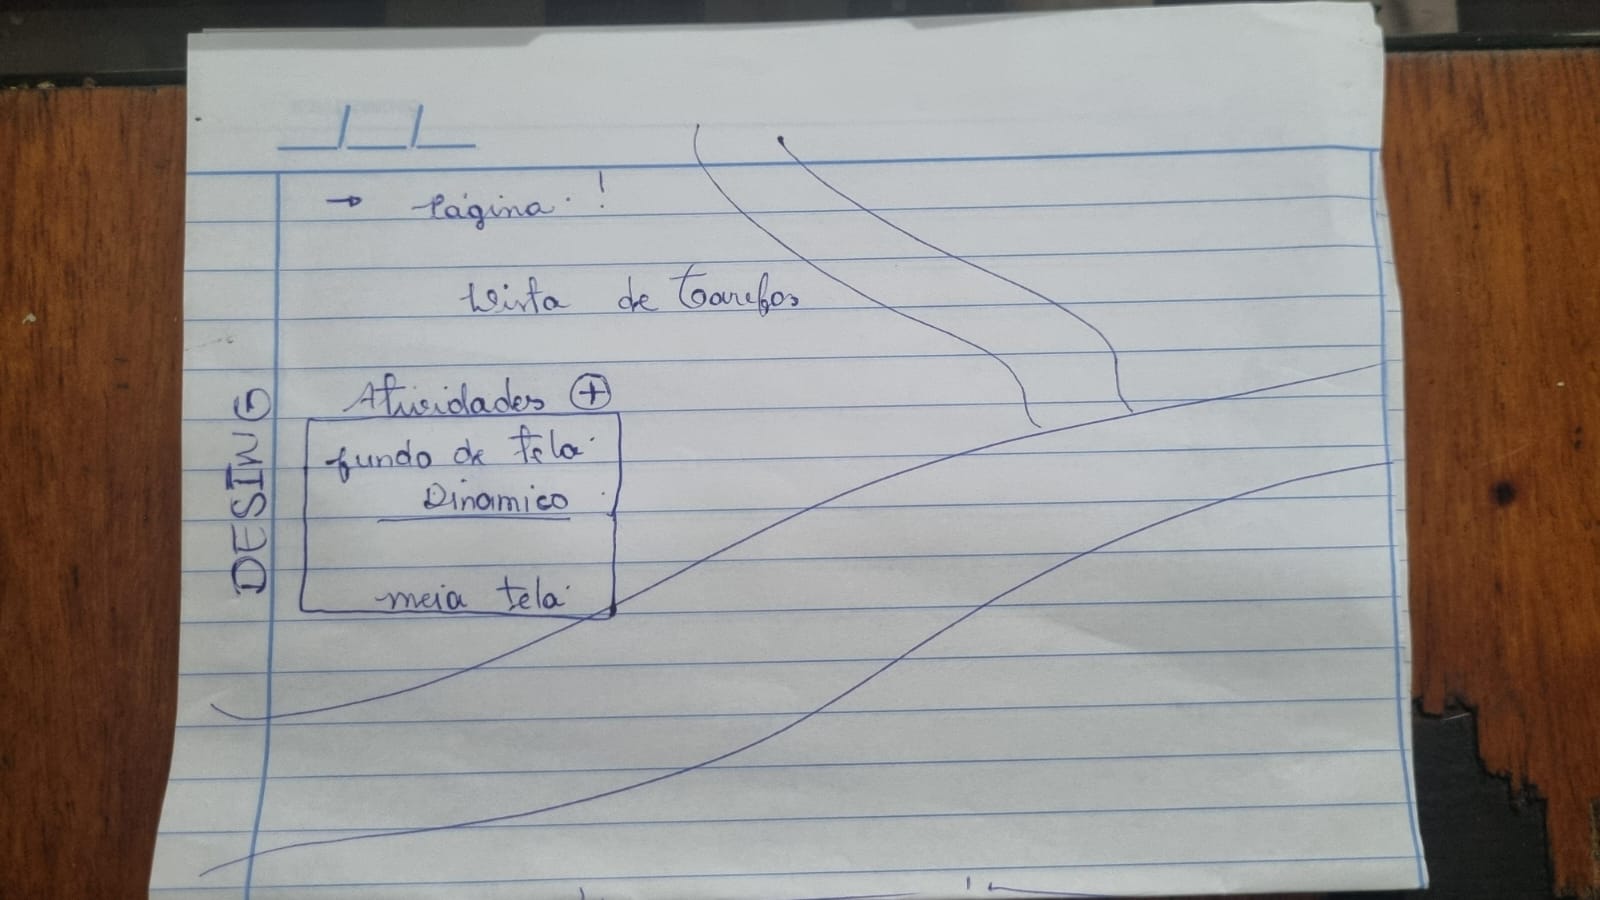 → Página !
Lista de Tarefas
Atividades +
fundo de tela
Dinamico
meia tela
DESING